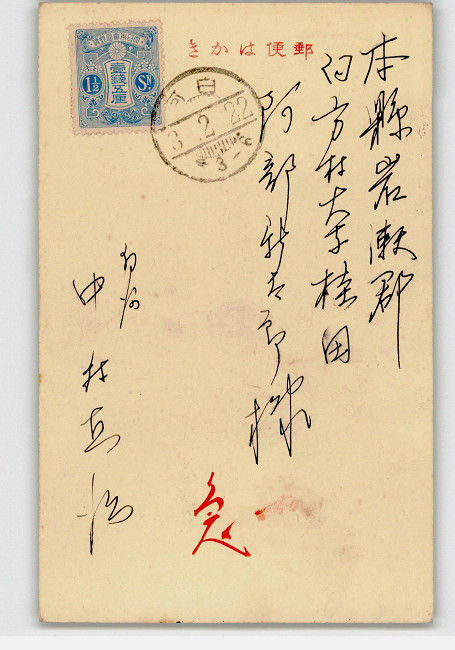 郵便はかき
本縣岩瀬郡
白方村大字桂田
阿部新太郎様
急
白河
中村直治
大日本帝國郵便
壹錢五厘
1½ Sn
白河
3.2.22
3-6